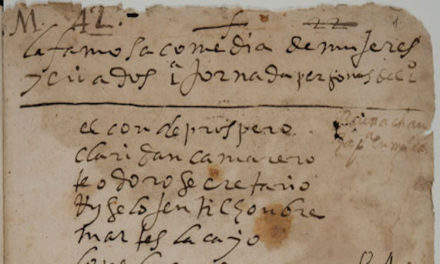 M. 42.
la famosa comedia de mujeres
y criados 1ª Jornada personas del
el conde prospero
claridan camarero
teodoro secretario
gentilhombre
martes lacayo